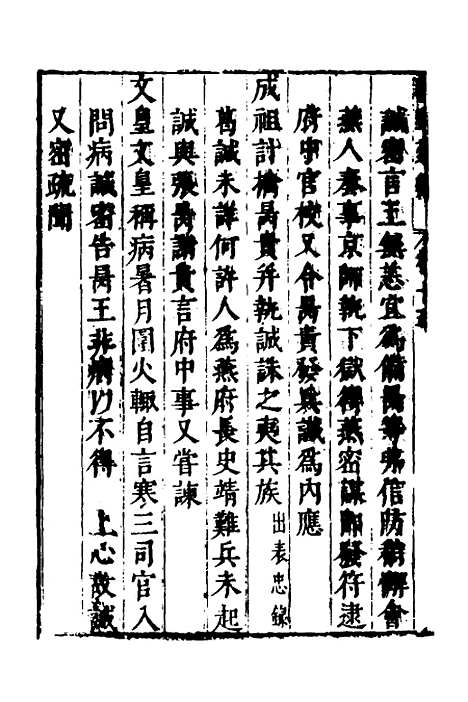 誠密言王無恙宜爲備昺等弗信防稍懈會
燕人奏事京師執下獄得燕密謀卽發符逮
府中官校又令昺貴發兵誠爲內應
成祖計擒昺貴并執誠誅之夷其族 出表忠錄
葛誠未詳何許人爲燕府長史靖難兵未起
誠與張昺謝貴言府中事又嘗諫
文皇文皇稱病暑月圍火輙自言寒三司官入
問病誠密告昺王非病以不得 上心故誠
又密疏聞